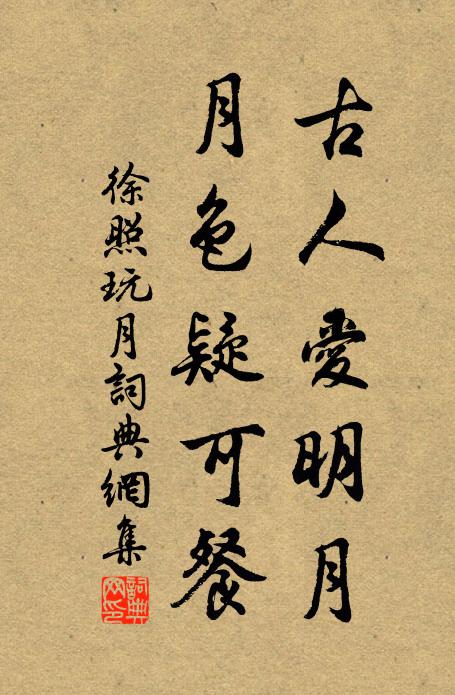 古人愛明月
月色疑可餐
徐照玩月詞典網集
詞典網印